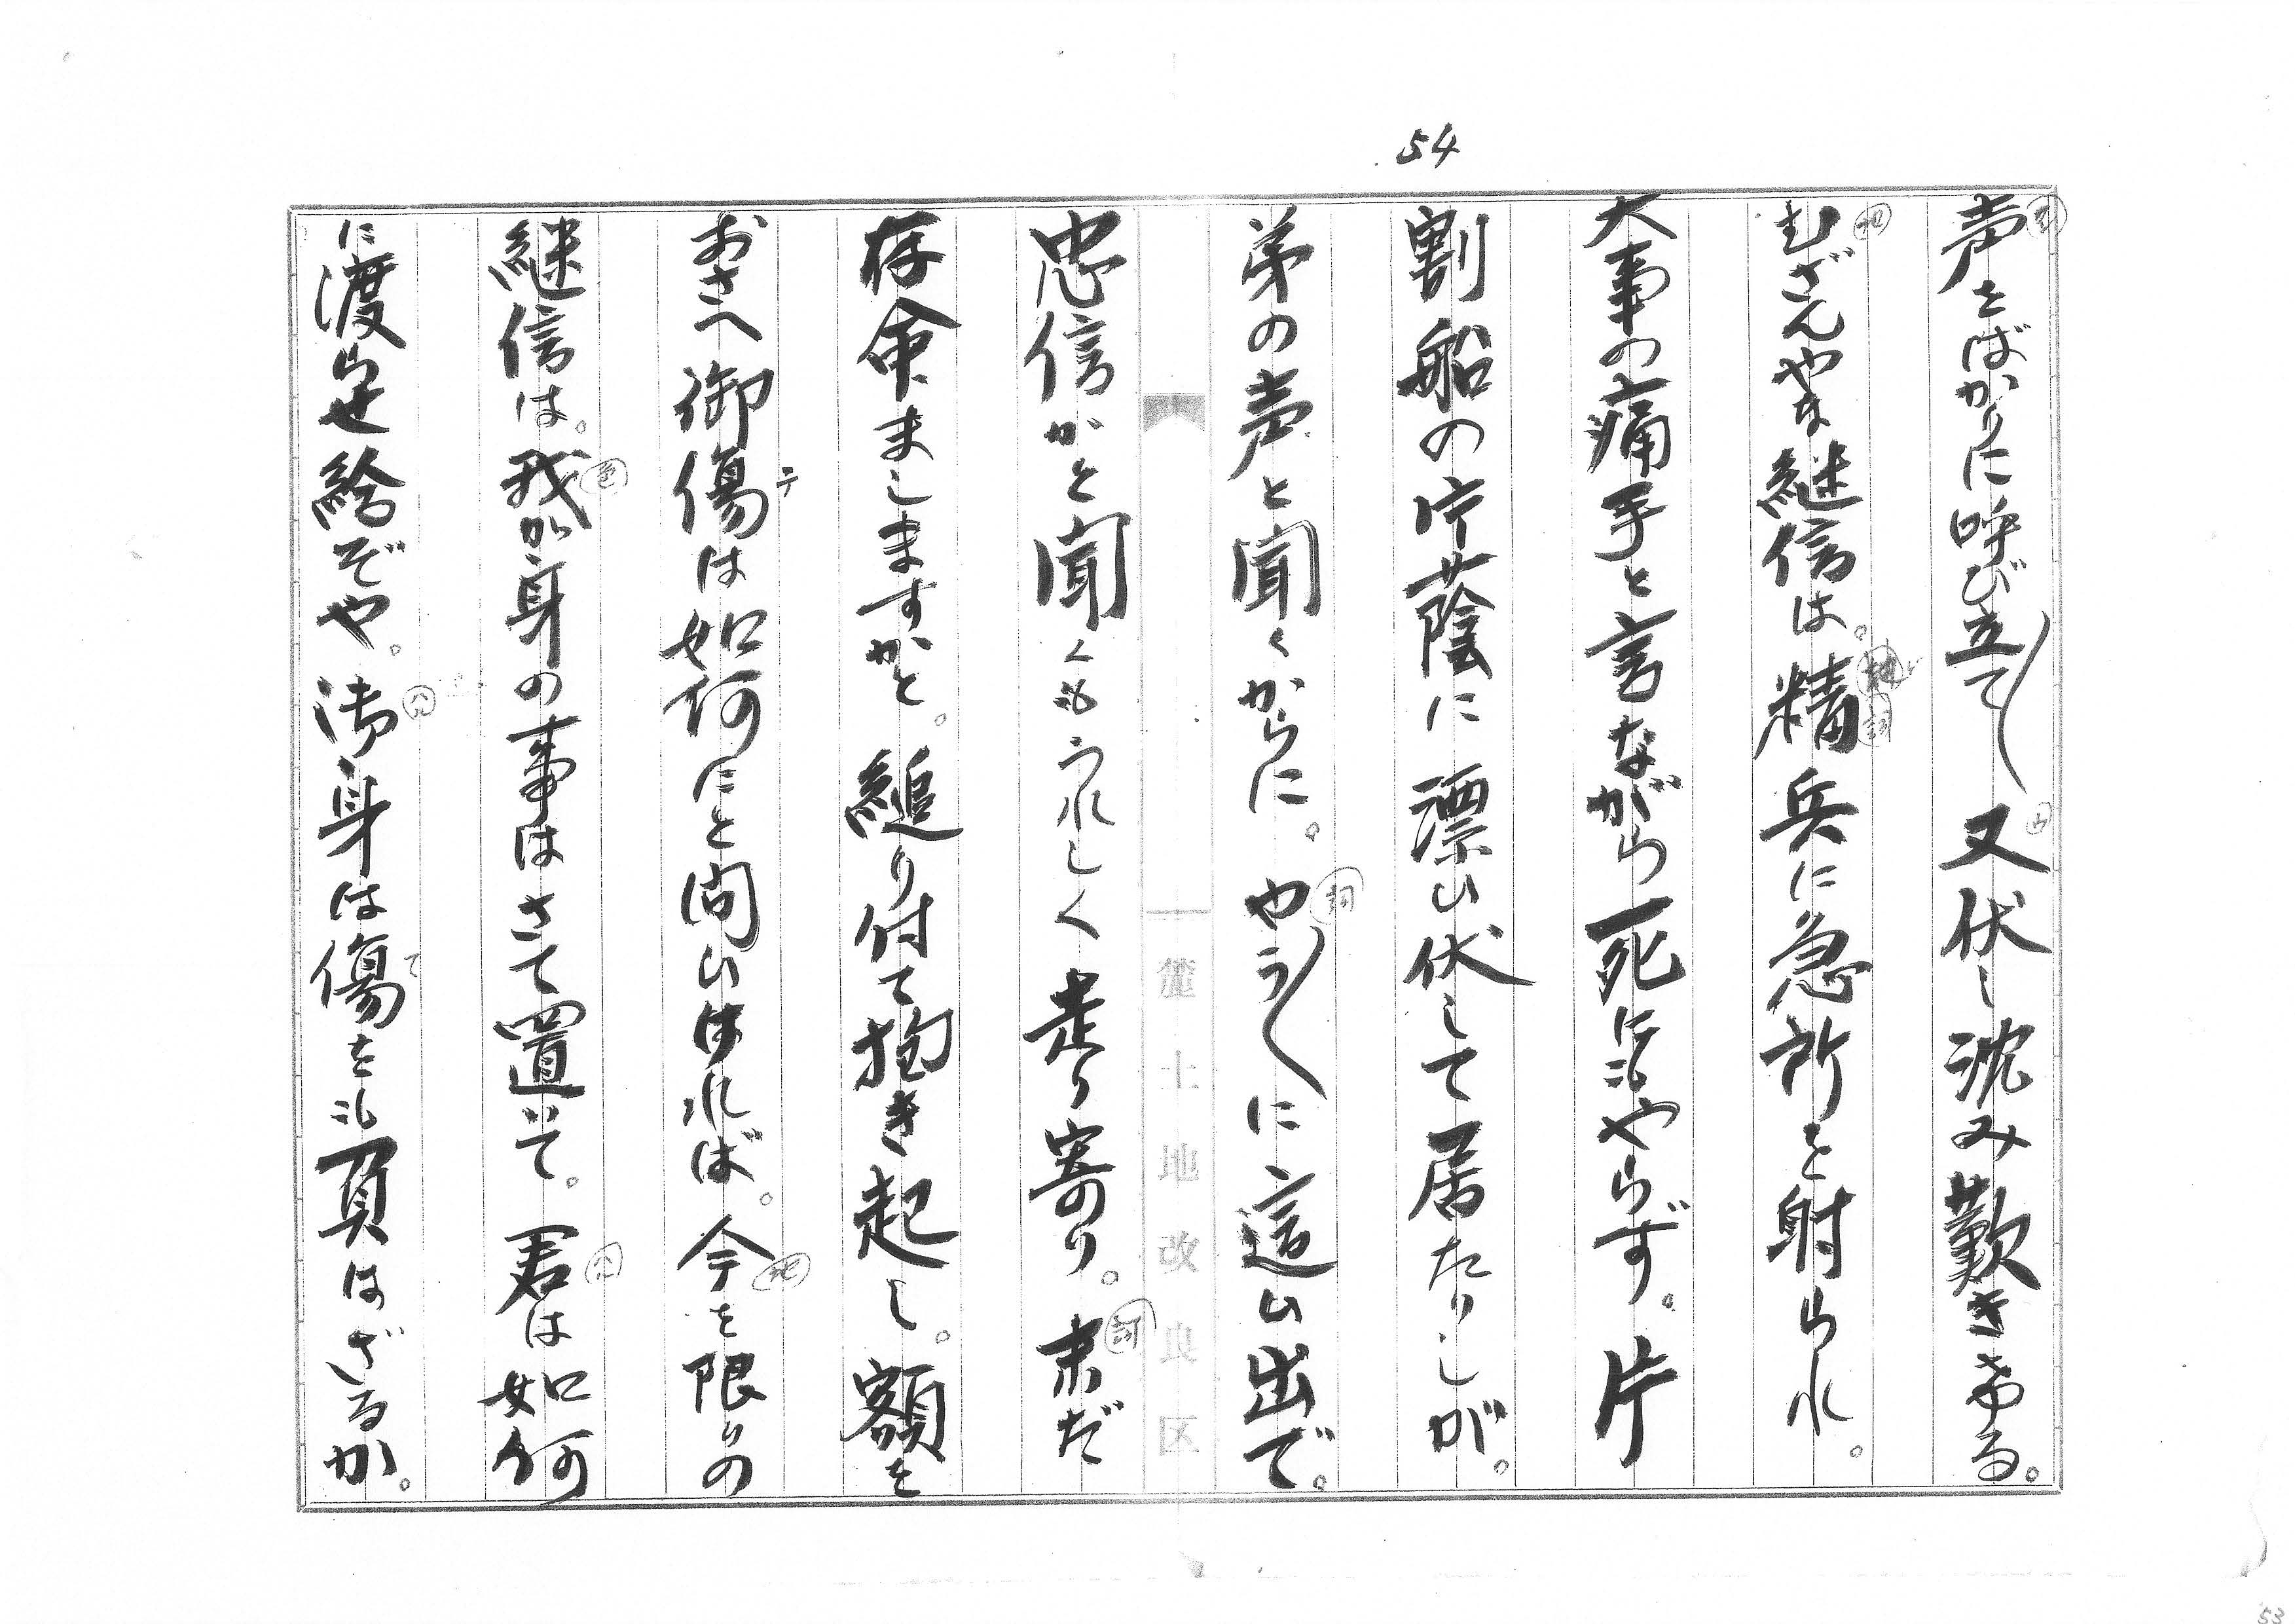 54
声をばかりに呼び立て〱又伏し沈み歎きゐる。
むざんやな継信は。精兵に急所を射られ。
大事の痛手と言ながら死にもやらず。片
割船の片蔭に漂ひ伏して居たりしが。
弟の声と聞くからに。やう〱に這ひ出で。
忠信がと聞くもうれしく走り寄り。未だ
存命ましますかと。縋り付て抱き起し。額を
おさへ御傷は如何にと問ひければ。今を限りの
継信は。我が身の事はさて置いて。君は如何
に渡らせ給ぞや。御身は傷をも負はざるか。
土地改良区
53